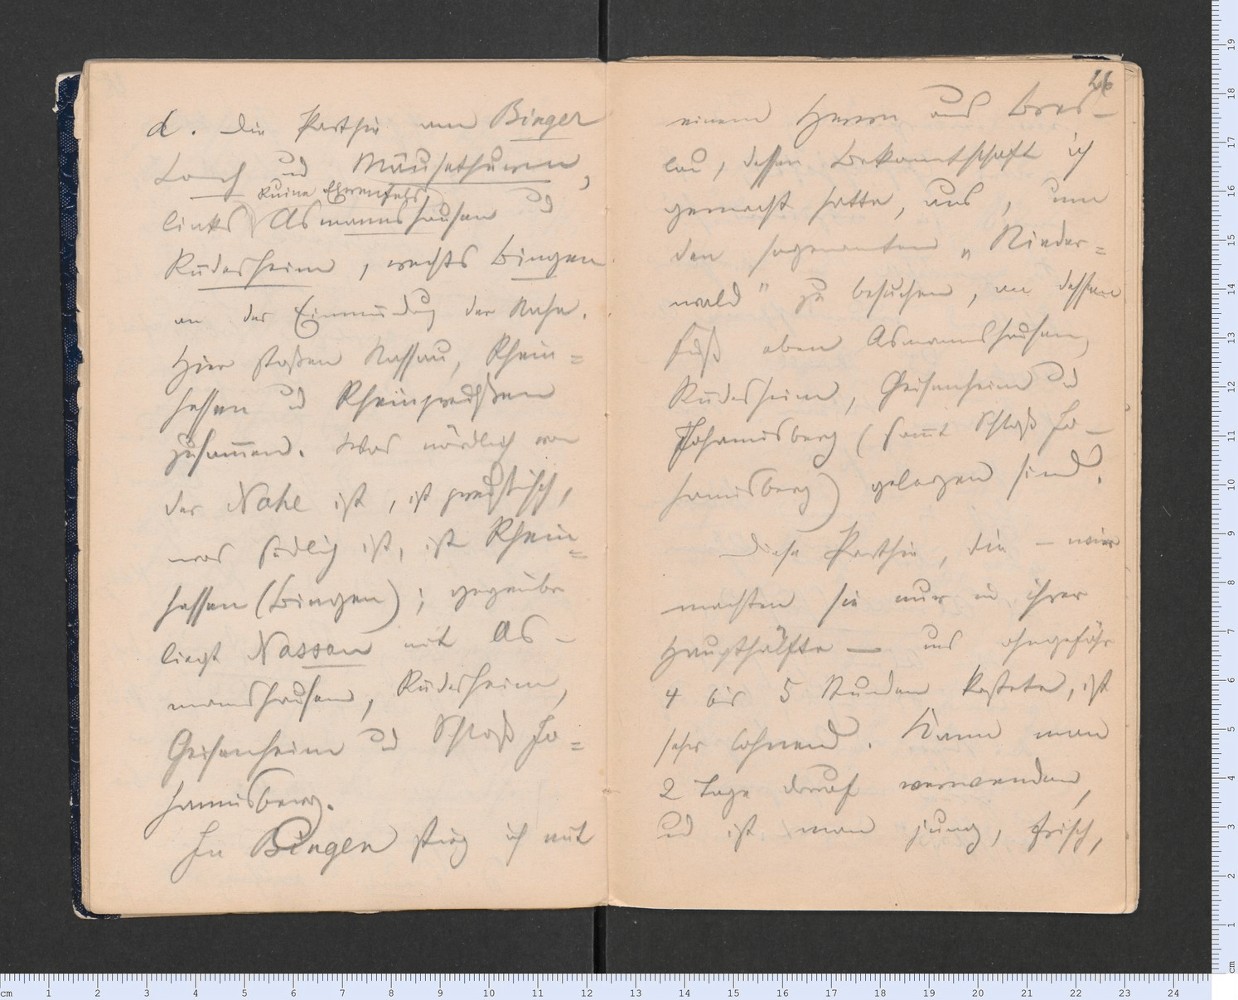 d. Die Parthie am Binger
Loch und Mäusethurm,
Ruine Ehrenfels
links Asmannshausen und
Rüdesheim, rechts Bingen
an der Einmündung der Nahe.
Hier stoßen Nassau, Rhein=
hessen und Rheinpreußen
zusam̄en. Was nördlich von
der Nahe ist, ist preußisch,
was südlich ist, ist Rhein=
hessen (Bingen); gegenüber
liegt Nassau mit As-
mannshausen, Rüdesheim,
Geisenheim und Schloß Jo=
hannisberg.
In Bingen stieg ich mit
26
einem Herrn aus Bres-
lau, dessen Bekanntschaft ich
gemacht hatte, aus, um
den sogenannten „Nieder=
wald" zu besuchen, an dessen
Fuß eben Asmannshausen,
Rüdesheim, Geisenheim und
Johannisberg (sam̄t Schloß Jo-
hannisberg) gelegen sind.
Diese Parthie, die – wir
machten sie nur in ihrer
Haupthälfte – uns ohngefähr
4 bis 5 Stunden kostete, ist
sehr lohnend. Kann man
2 Tage darauf verwenden,
und ist man jung, frisch,